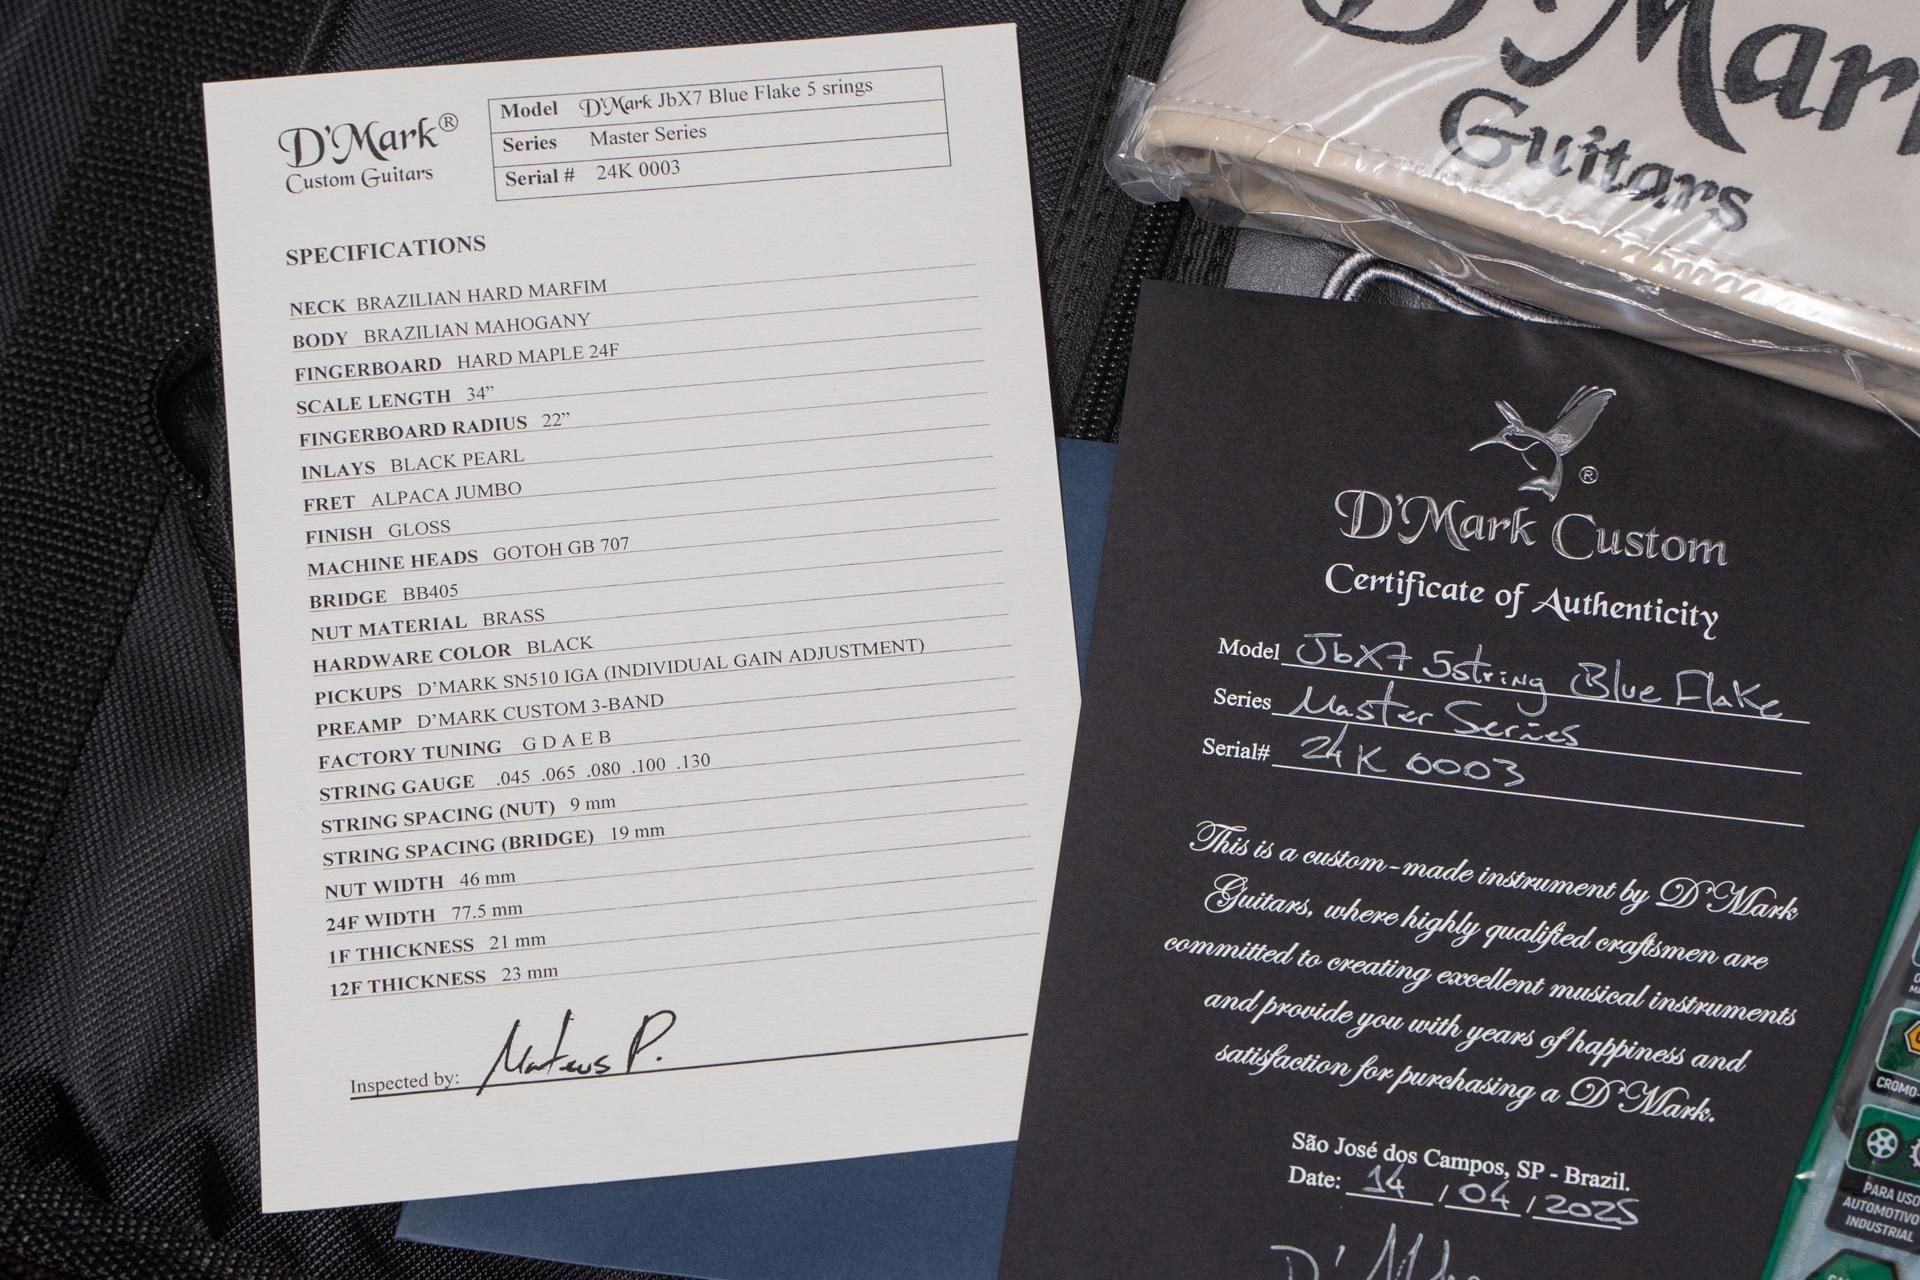 D'Mark®
Custom Guitars
Model D'Mark JbX7 Blue Flake 5 srings
Series Master Series
Serial # 24K 0003
SPECIFICATIONS
NECK BRAZILIAN HARD MARFIM
BODY BRAZILIAN MAHOGANY
FINGERBOARD HARD MAPLE 24F
SCALE LENGTH 34”
FINGERBOARD RADIUS 22”
INLAYS BLACK PEARL
FRET ALPACA JUMBO
FINISH GLOSS
MACHINE HEADS GOTOH GB 707
BRIDGE BB405
NUT MATERIAL BRASS
HARDWARE COLOR BLACK
PICKUPS D’MARK SN510 IGA (INDIVIDUAL GAIN ADJUSTMENT)
PREAMP D’MARK CUSTOM 3-BAND
FACTORY TUNING G D A E B
STRING GAUGE .045 .065 .080 .100 .130
STRING SPACING (NUT) 9 mm
STRING SPACING (BRIDGE) 19 mm
NUT WIDTH 46 mm
24F WIDTH 77.5 mm
1F THICKNESS 21 mm
12F THICKNESS 23 mm
Inspected by: Mateus P.
D'Mark
Guitars
®
D'Mark Custom
Certificate of Authenticity
Model JbX7 5string Blue Flake
Series Master Series
Serial# 24K 0003
This is a custom-made instrument by D'Mark
Guitars, where highly qualified craftsmen are
committed to creating excellent musical instruments
and provide you with years of happiness and
satisfaction for purchasing a D'Mark.
São José dos Campos, SP - Brazil.
Date: 14 / 04 / 2025
CROMO-
PARA USO
AUTOMOTIVO
INDUSTRIAL